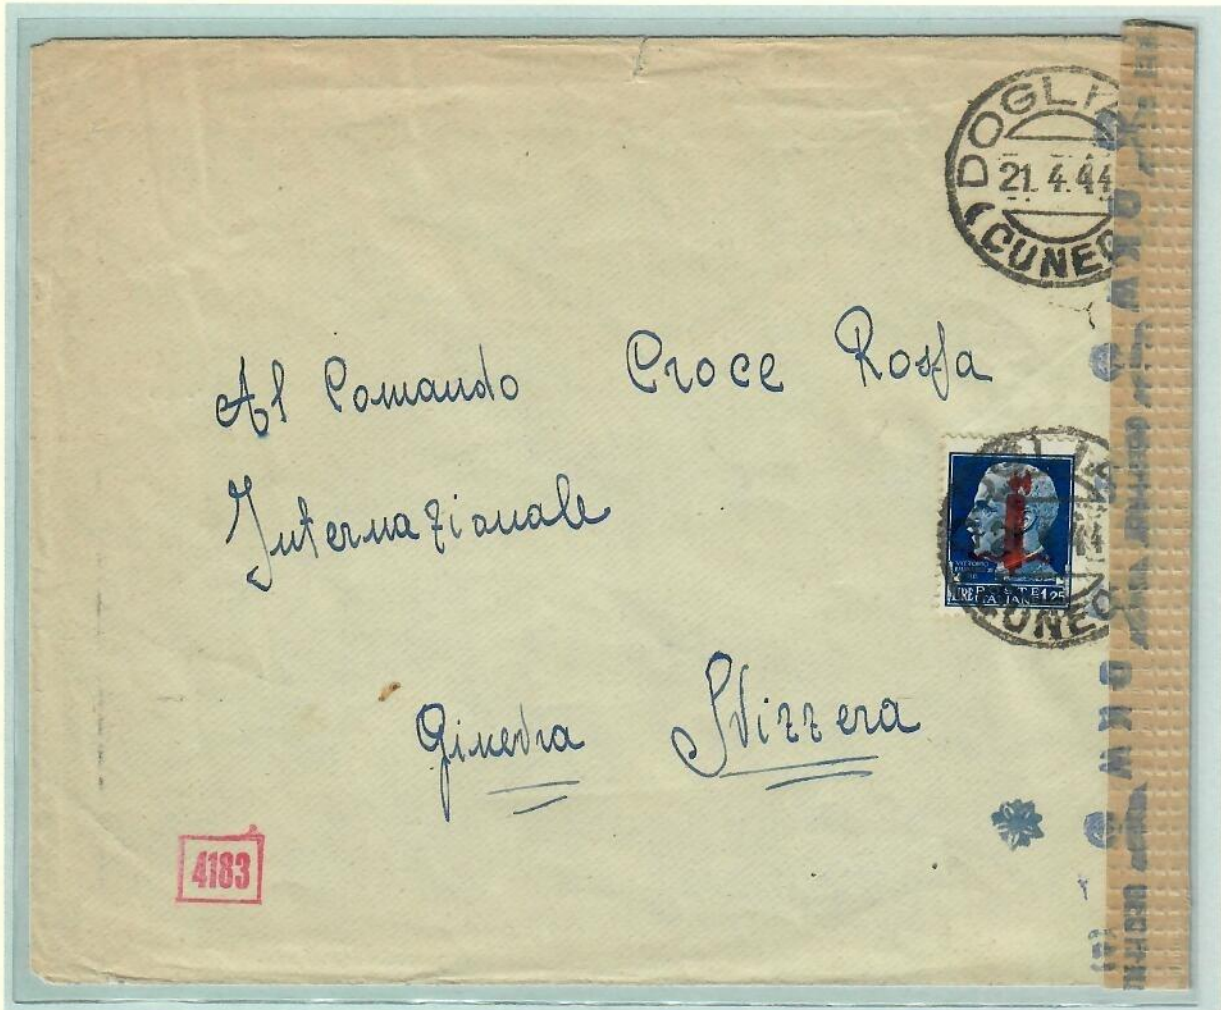 DOGLI
21.4.44
(CUNEO
Al Comando Croce Rossa
Internazionale
POSTE
LIRE ITALIANE 1,25
CUNEO
Ginevra Svizzera
OKW
OKW
4183